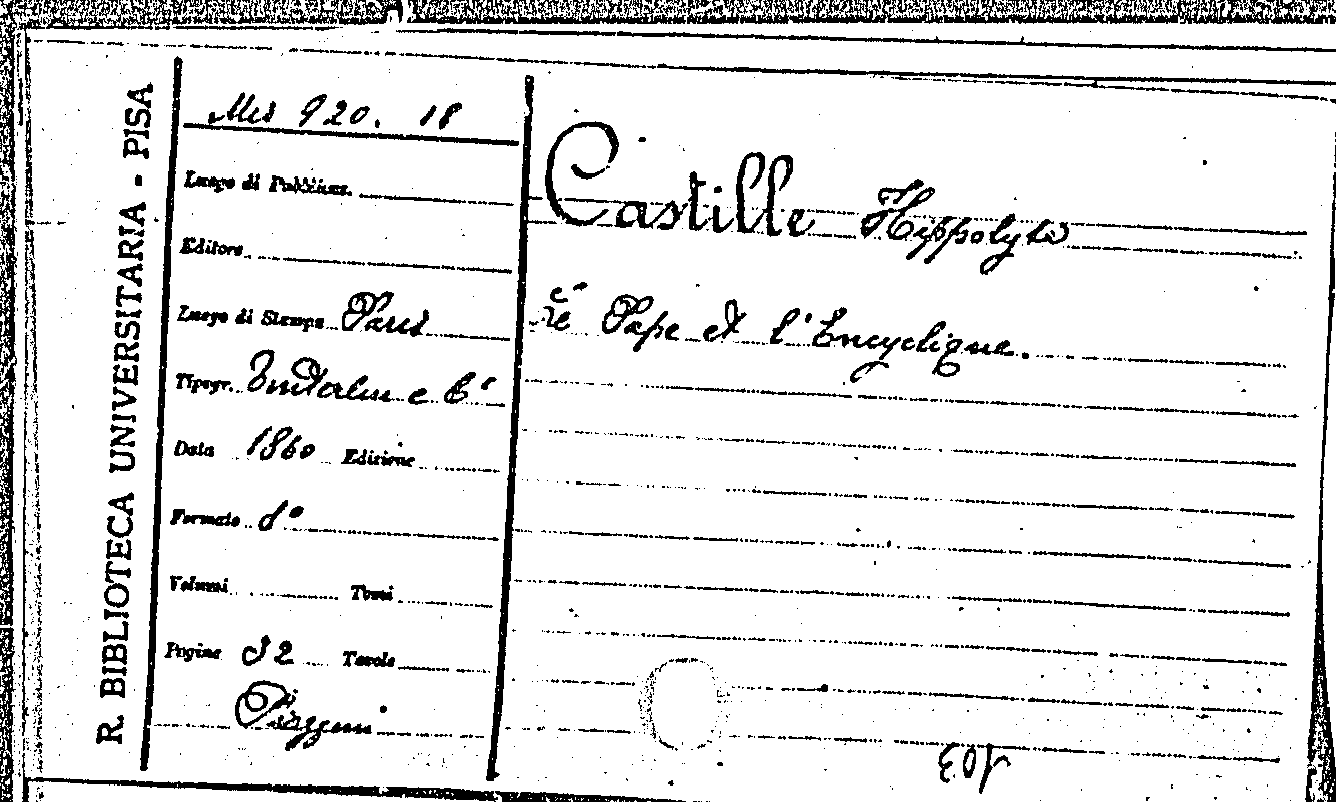 R. BIBLIOTECA UNIVERSITARIA - PISA
Mis 920. 18
Luogo di Pubblicaz.
Editore
Luogo di Stampa Paris
Tipogr. e C.
Data 1860 Edizione
Formato 8°
Volumi Tomi
Pagine 32 Tavole
Piaggini
Castille Hippolyte
Le Pape et l'Encyclique.